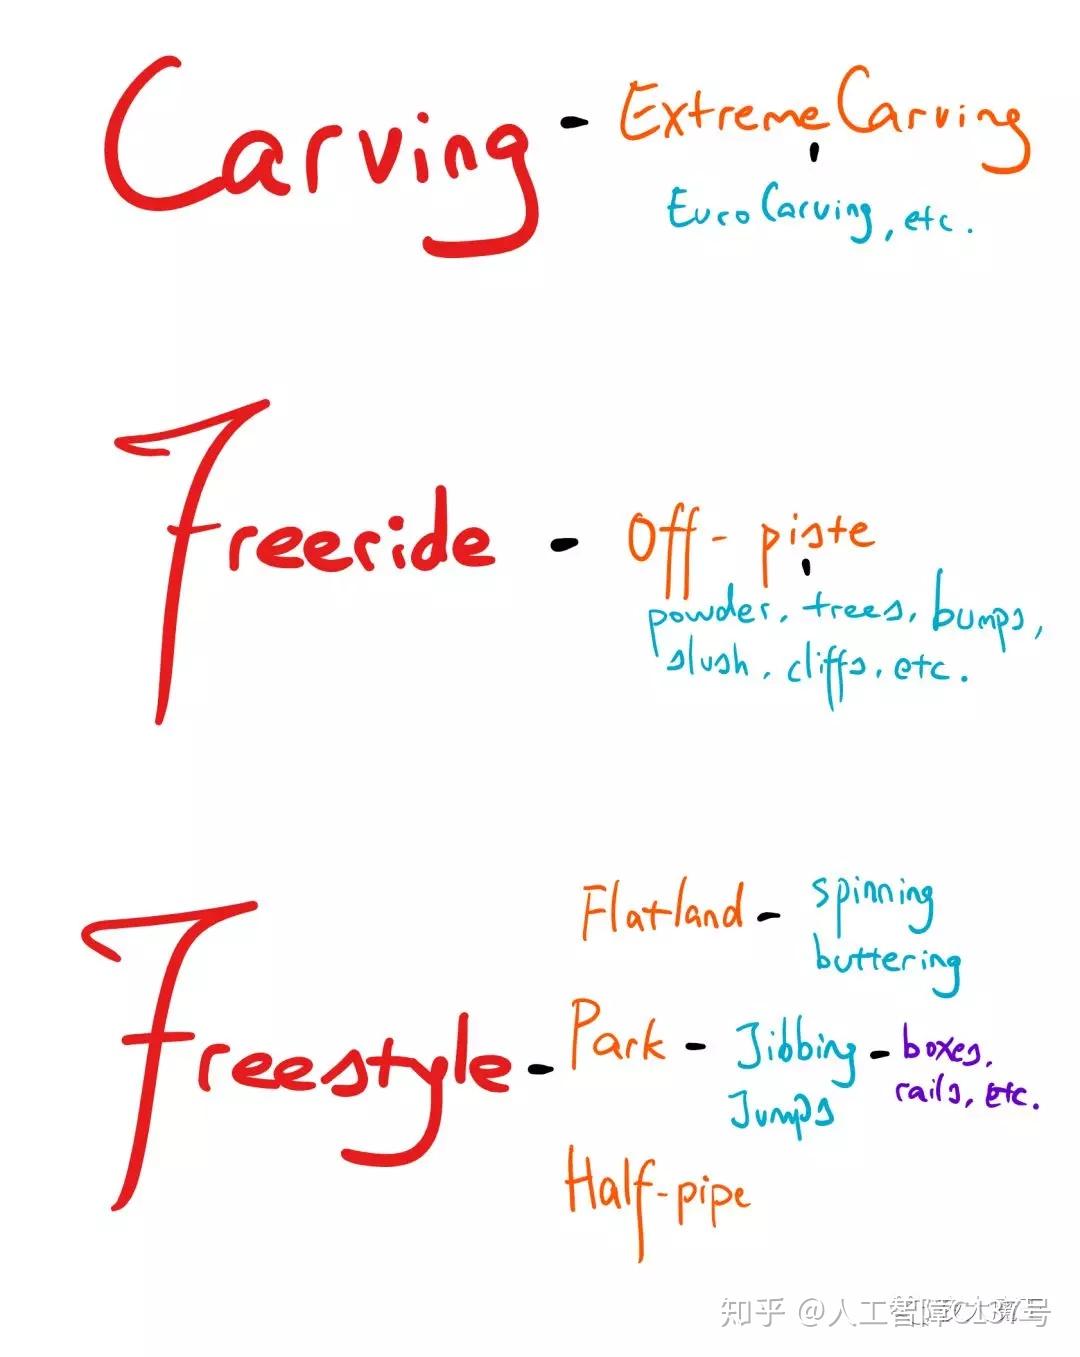 Carving - Extreme Carving
Euro Carving, etc.
Freeride - Off-piste
powder, trees, bumps,
slush, cliffs, etc.
Freestyle -
Flatland - spinning
buttering
Park - Jibbing - boxes,
rails, etc.
Jumps
Half-pipe
知乎 @人工智障C137号